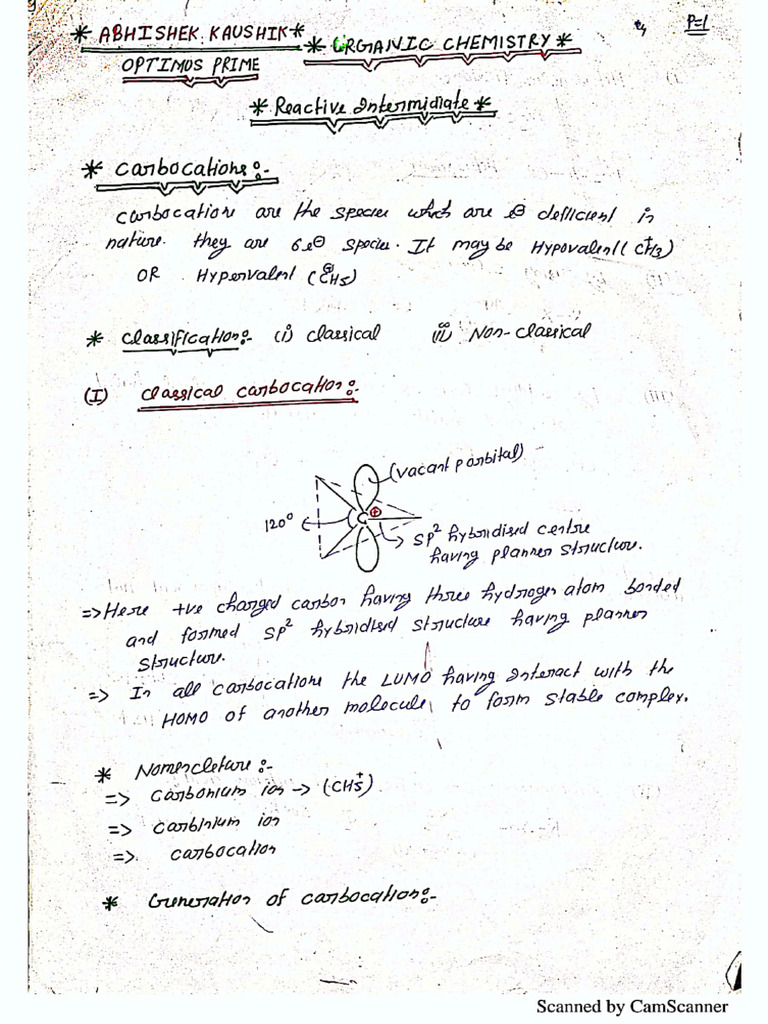 P=1
* ABHISHEK KAUSHIK *
OPTIMUS PRIME
* ORGANIC CHEMISTRY *
* Reactive Intermidiate *
* Carbocations:-
Carbocation are the species which are e⊖ defficient in
nature. they are 6e⊖ species. It may be Hypovalent (CH3+)
OR Hypervalent (C⊕H5)
* Classification:- (i) classical (ii) Non-classical
(I) Classical carbocation:-
(vacant p orbital)
120°
C⊕
sp² hybridised centre
having planner structure.
=> Here +ve charged carbon having three hydrogen atom bonded
and formed sp² hybridised structure having planner
structure.
=> In all carbocations the LUMO having interact with the
HOMO of another molecule to form stable complex.
* Nomencleture:-
=> Carbonium ion → (CH5+)
=> carbinium ion
=> carbocation
* Generation of carbocation:-
Scanned by CamScanner